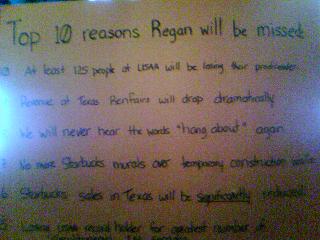 Top 10 reasons Regan will be missed:
10 At least 125 people at USAA will be losing their
Revenue at Texas Renfairs will drop dramatically
We will never hear the words "hang about" again
No more Starbucks murals over temporary construction walls
6 Starbucks sales in Texas will be significantly reduced
USAA record holder for greatest number of